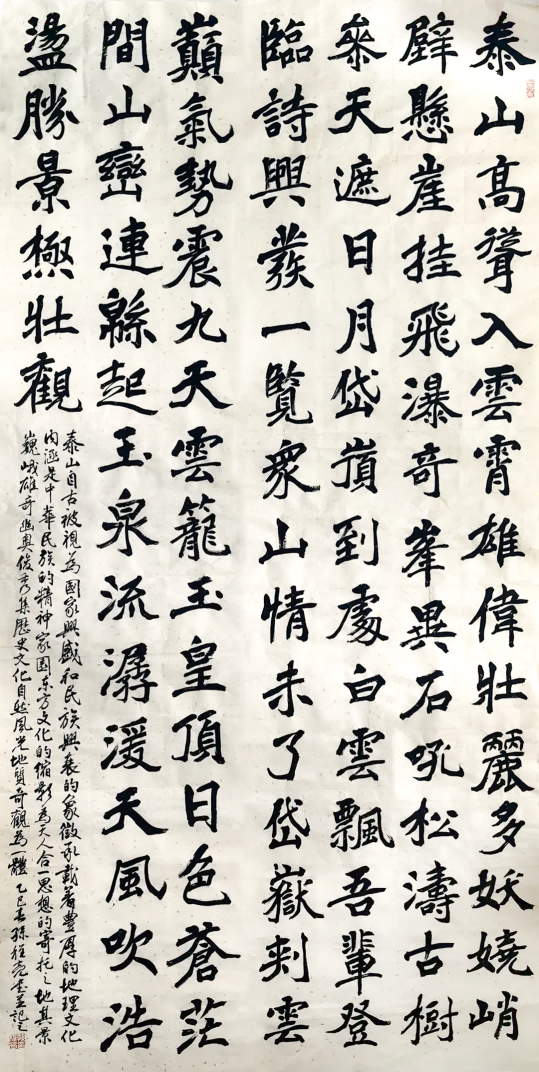 泰山高聳入雲霄雄偉壯麗多妖嬈峭
壁懸崖挂飛瀑奇峯異石吼松濤古樹
叅天遮日月岱嶺到處白雲飄吾輩登
臨詩興發一覽衆山情未了岱嶽刺雲
巔氣勢震九天雲籠玉皇頂日色蒼茫
間山巒連緜起玉泉流潺湲天風吹浩
盪勝景極壯觀
泰山自古被視為國家興盛和民族興衰的象徵承載着豐厚的地理文化
内涵是中華民族的精神家園东方文化的缩影為天人合一思想的寄托之地其景
巍峨雄奇幽奥俊秀集歷史文化自然風光地質奇觀為一體 乙巳春孫亮書並記之